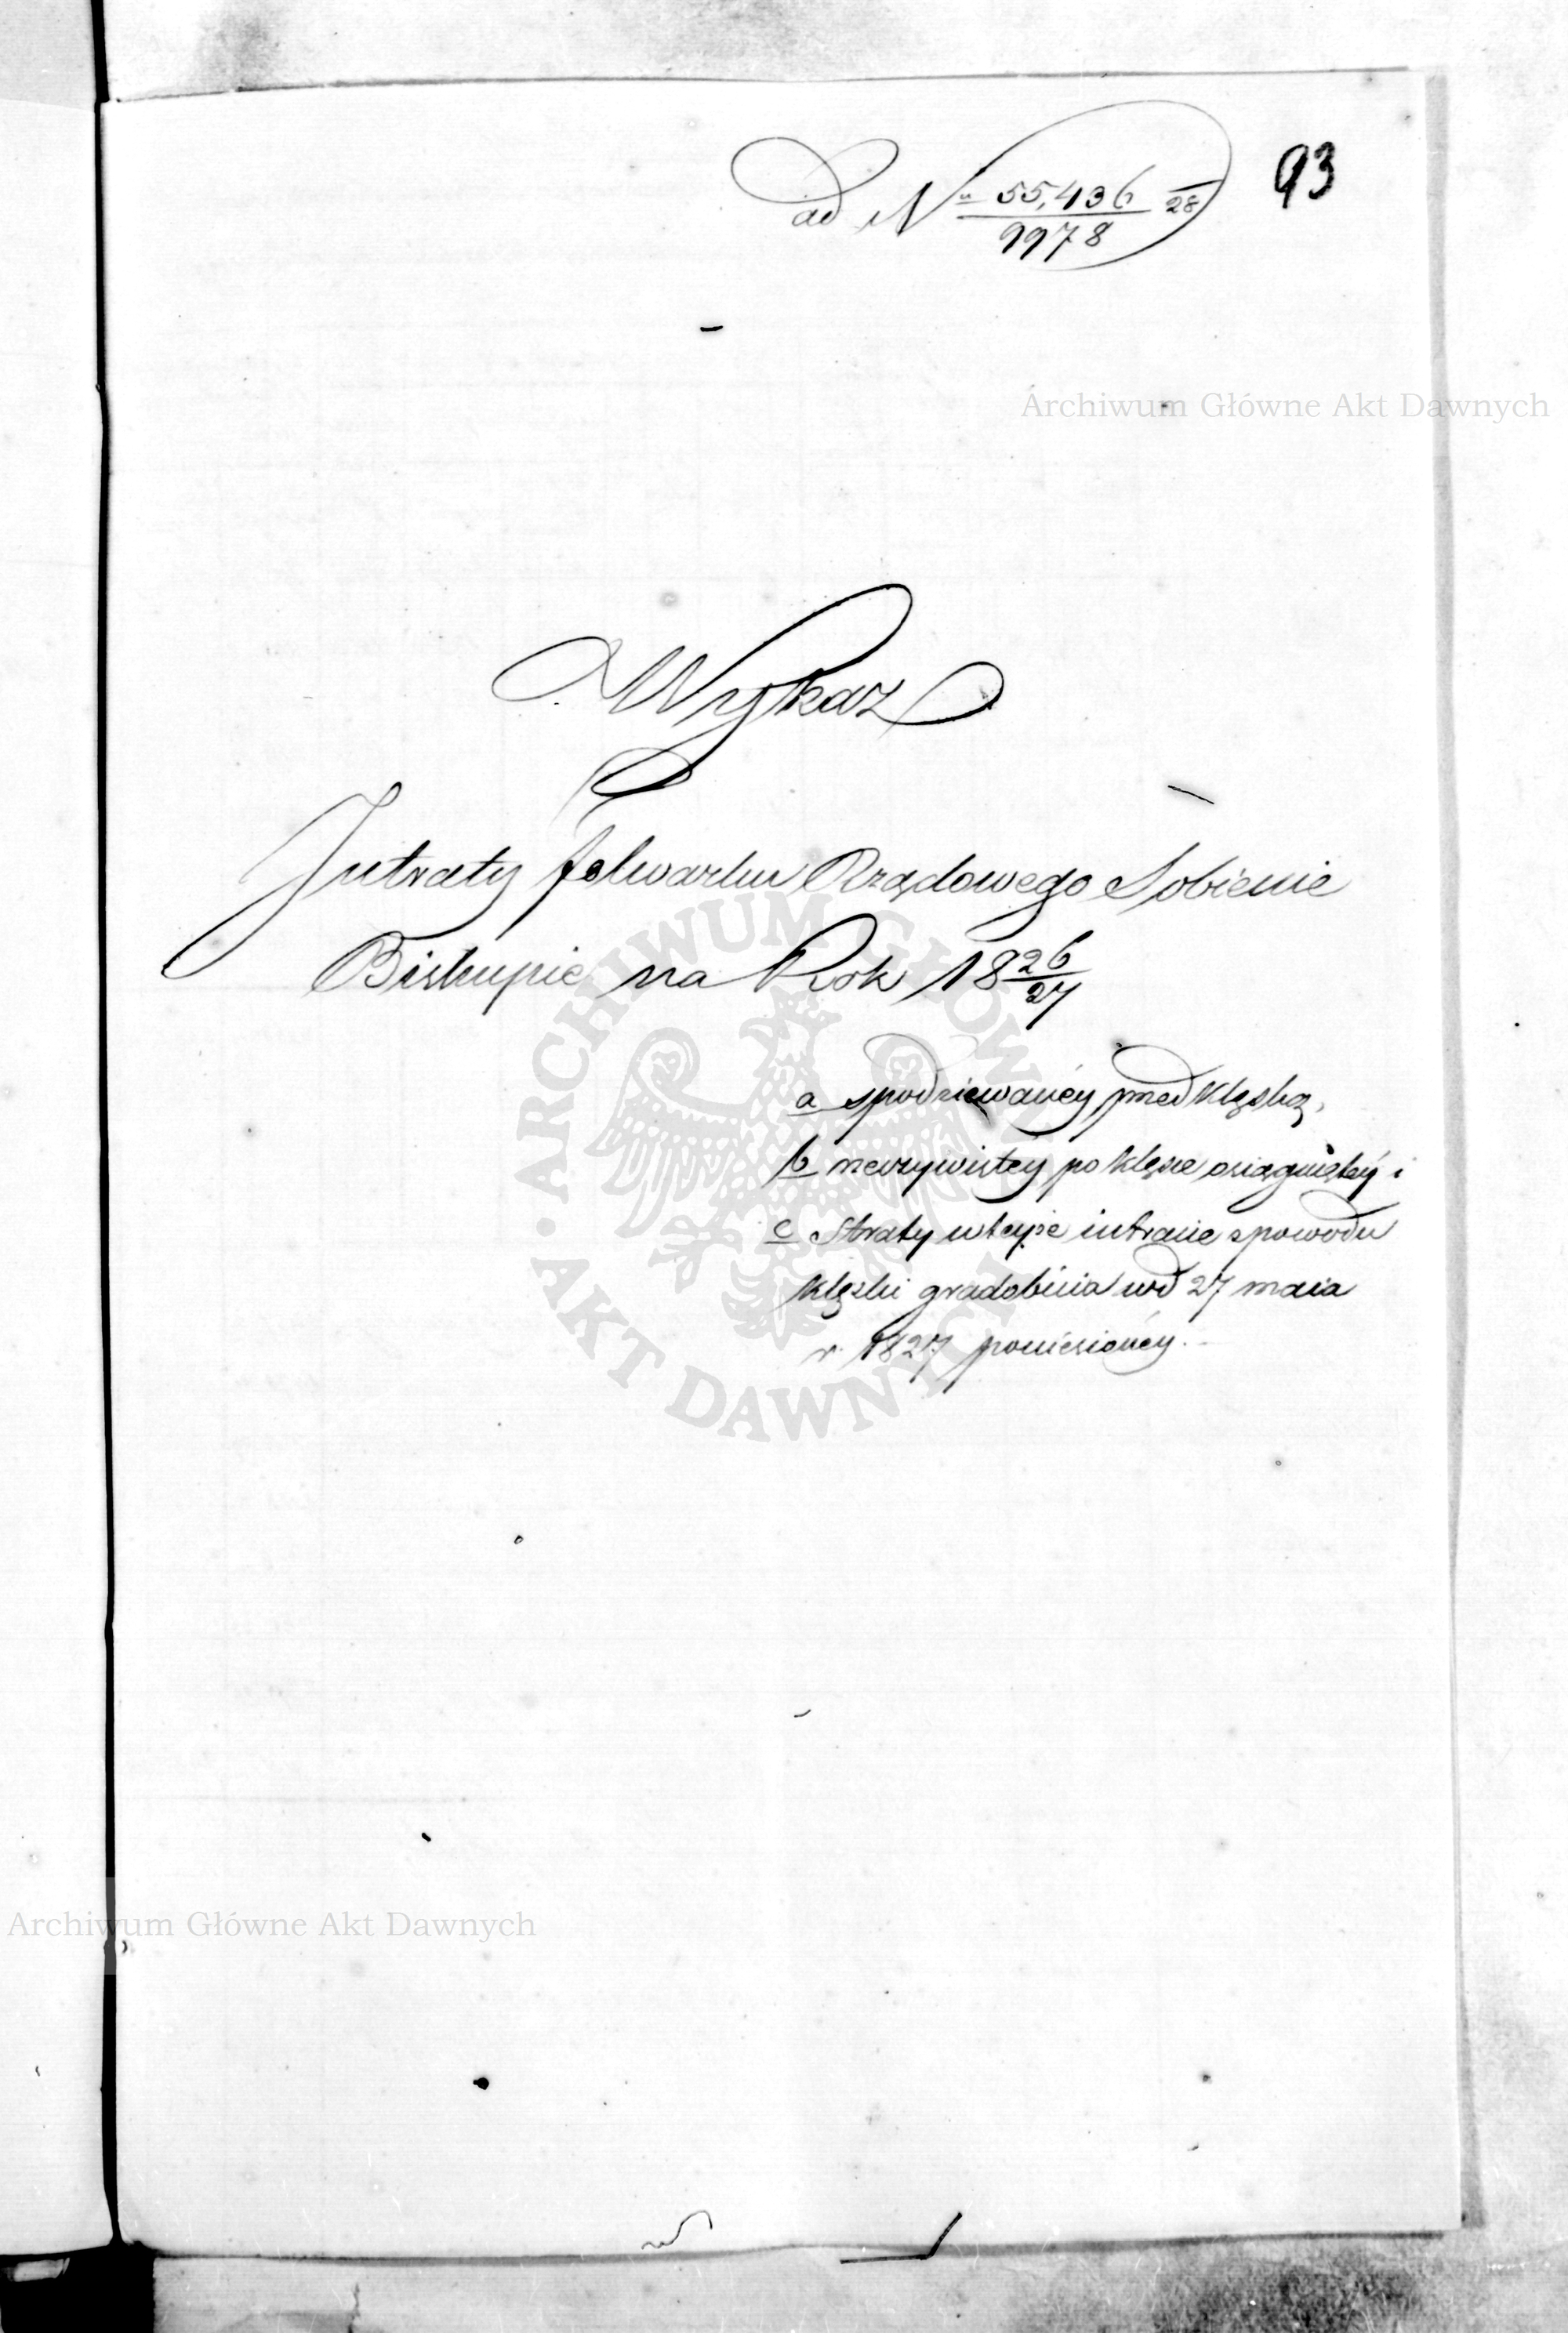 ad N° 55,436/9978 28
93
Archiwum Główne Akt Dawnych
Wykaz
Jntraty folwarku Rządowego Sobienie
Biskupie na Rok 18 26/27
a spodziewanéy przed klęską,
b rzeczywistey po klęsce osiągniętéy i
c Straty wteyże intracie zpowodu
klęski gradobicia wd 27 maia
r. 1827 poniesionéy.
ARCHIWUM GŁÓWNE • AKT DAWNYCH •
Archiwum Główne Akt Dawnych